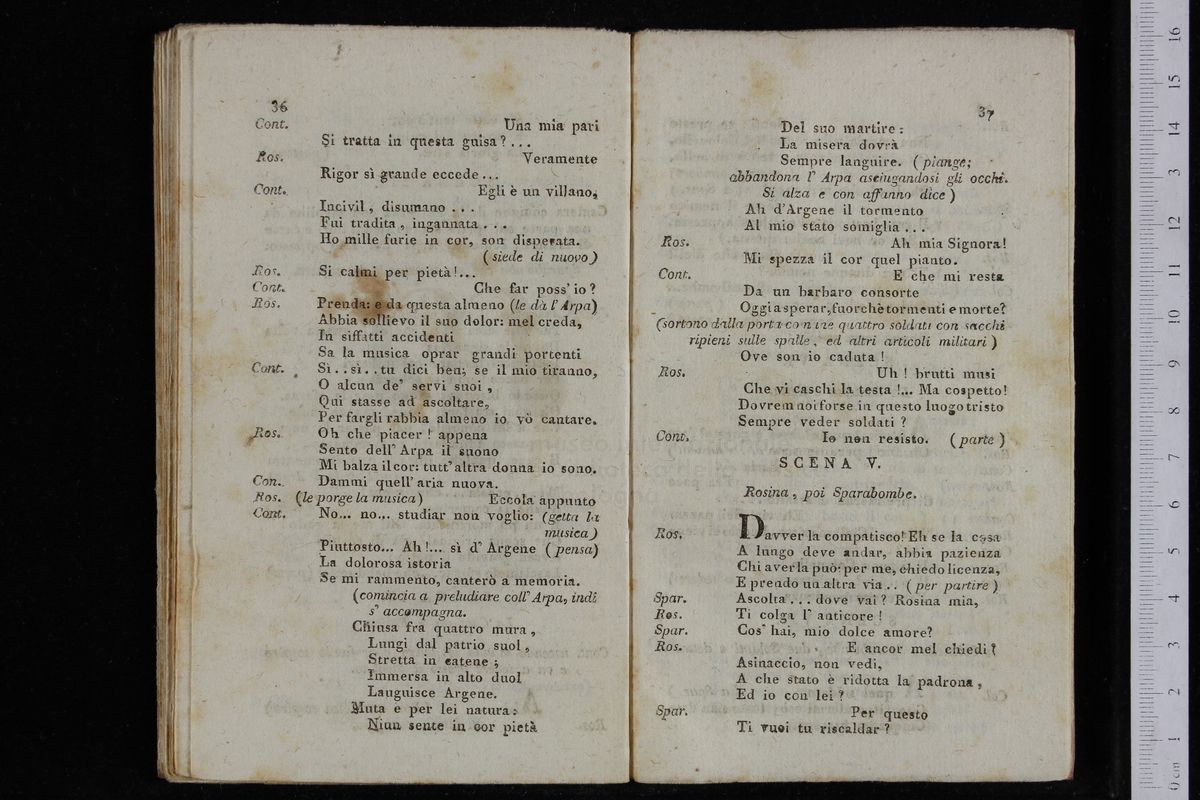 36
Cont. Una mia pari
Si tratta in questa guisa ? . . .
Ros. Veramente
Rigor sì grande eccede . . .
Cont. Egli è un villano,
Incivil , disumano . . .
Fui tradita , ingannata . . .
Ho mille furie in cor, son disperata.
( siede di nuovo )
Ros. Si calmi per pietà !...
Cont. Che far poss' io ?
Ros. Prenda: e da questa almeno (le dà l' Arpa)
Abbia sollievo il suo dolor: mel creda,
In siffatti accidenti
Sa la musica oprar grandi portenti
Cont. Sì . . sì . . tu dici ben; se il mio tiranno,
O alcun de' servi suoi ,
Qui stasse ad ascoltare,
Per fargli rabbia almeno io vò cantare.
Ros. Oh che piacer ! appena
Sento dell' Arpa il suono
Mi balza il cor: tutt' altra donna io sono.
Con. Dammi quell' aria nuova.
Ros. (le porge la musica) Eccola appunto
Cont. No... no... studiar non voglio: (getta la
musica)
Piuttosto... Ah !... sì d' Argene ( pensa)
La dolorosa istoria
Se mi rammento, canterò a memoria.
(comincia a preludiare coll' Arpa, indi
s' accompagna.
Chiusa fra quattro mura ,
Lungi dal patrio suol ,
Stretta in catene ;
Immersa in alto duol
Languisce Argene.
Muta e per lei natura:
Niun sente in cor pietà
37
Del suo martire :
La misera dovrà
Sempre languire. ( piange;
abbandona l' Arpa asciugandosi gli occhi.
Si alza e con affanno dice )
Ah d'Argene il tormento
Al mio stato somiglia . . .
Ros. Ah mia Signora!
Mi spezza il cor quel pianto.
Cont. E che mi resta
Da un barbaro consorte
Oggi a sperar, fuorchè tormenti e morte?
(sortono dalla porta comune quattro soldati con sacchi
ripieni sulle spalle , ed altri articoli militari )
Ove son io caduta !
Ros. Uh ! brutti musi
Che vi caschi la testa !... Ma cospetto!
Dovrem noi forse in questo luogo tristo
Sempre veder soldati ?
Cont. Io non resisto. ( parte )
SCENA V.
Rosina , poi Sparabombe.
Ros. Davver la compatisco! Eh se la cosa
A lungo deve andar, abbia pazienza
Chi aver la può: per me, chiedo licenza,
E prendo un altra via . . ( per partire )
Spar. Ascolta . . . dove vai ? Rosina mia,
Ros. Ti colga l' anticore !
Spar. Cos' hai, mio dolce amore?
Ros. E ancor mel chiedi ?
Asinaccio, non vedi,
A che stato è ridotta la padrona ,
Ed io con lei ?
Spar. Per questo
Ti vuoi tu riscaldar ?
0 cm 1 2 3 4 5 6 7 8 9 10 11 12 13 14 15 16